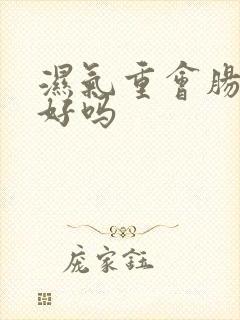 濕氣重會腸
好吗
庞家鈺